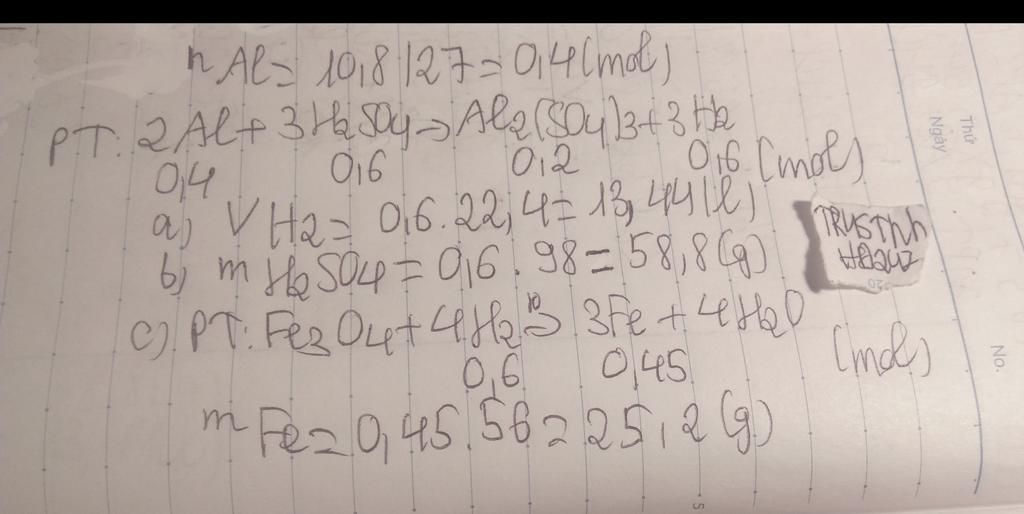 n Al = 10,8 / 27 = 0,4 (mol)
PT: 2Al + 3H2SO4 → Al2(SO4)3 + 3H2
0,4 0,6 0,2 0,6 (mol)
a) V H2 = 0,6 . 22,4 = 13,44 (l)
b) m H2SO4 = 0,6 . 98 = 58,8 (g)
c) PT: Fe3O4 + 4H2 → 3Fe + 4H2O
0,6 0,45 (mol)
m Fe = 0,45 . 56 = 25,2 (g)
Thứ
Ngày
No.
5